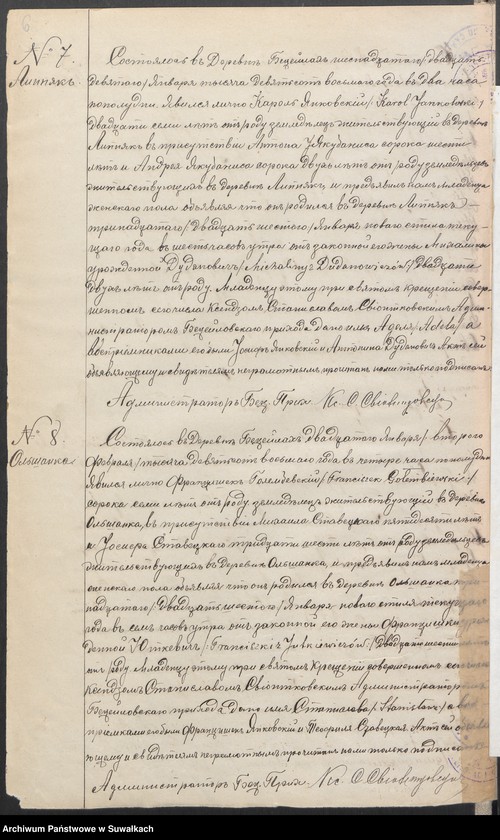 6
№ 7
Липнякъ.
Состоялось въ Деревнѣ Бецейлахъ шестнадцатаго /двадцать
девятаго/ Января тысяча девятьсотъ восьмаго года въ два часа
пополудни. Явился лично Кароль Янковскій /Karol Jankowski/
двадцати семи лѣтъ отъ роду земледѣлецъ жительствующій въ деревнѣ
Липнякъ въ присутствіи Антона Якубаниса сорока шести
лѣтъ и Андрея Якубаниса сорока двухъ лѣтъ отъ роду земледѣльцевъ
жительствующихъ въ деревнѣ Липнякъ и предъявилъ намъ младенца
женскаго пола объявляя что онъ родился въ деревнѣ Липнякъ
тринадцатаго /двадцать шестого/ Января новаго стиля теку-
щаго года въ шесть часовъ утра отъ законной его жены Михалины
урожденной Дудановичъ /Michaliny Dudanowiczów/ двадцати
двухъ лѣтъ отъ роду. Младенцу этому при святомъ крещеніи совер-
шенномъ сего числа Ксендзомъ Станиславомъ Свіонтковскимъ Адми-
нистраторомъ Бецейловскаго прихода дано имя Аделя /Adela/ а
воспріемниками его были Іосифъ Янковскій и Антонина Дудановичъ Актъ сей
объявляющему и свидѣтелямъ неграмотнымъ прочитанъ нами только подписанъ
Администраторъ Бец. Прих. Кс. С. Свіонтковскій
№ 8.
Ольшанка
Состоялось въ Деревнѣ Бецейлахъ двадцатаго Января /второго
февраля/ тысяча девятьсотъ восьмаго года въ четыре часа пополудни
Явился лично Францишекъ /Franciszek
сорока семи лѣтъ отъ роду земледѣлецъ жительствующій въ деревнѣ
Ольшанка, въ присутствіи Михаила Ставецкаго пятидесяти лѣтъ
и Іосифа Ставецкаго тридцати шести лѣтъ отъ роду земледѣльцевъ
жительствующихъ въ деревнѣ Ольшанка, и предъявилъ намъ младенца
женскаго пола объявляя что онъ родился въ деревнѣ Ольшанка три-
надцатаго /двадцать шестого/ Января новаго стиля текущаго
года въ семь часовъ утра отъ законной его жены Францишки
денной Юткевичъ /Franciszki Jutkiewiczów/ двадцати шести
отъ роду. Младенцу этому при святомъ крещеніи совершенномъ
Ксендзомъ Станиславомъ Свіонтковскимъ Администраторомъ
Бецейловскаго прихода дано имя /Stanisław/ а вос-
пріемниками его были Францишекъ Янковскій и Теофиля Актъ сей
и свидѣтелямъ неграмотнымъ прочитанъ нами только подписанъ
Администраторъ Бец. Прих. Кс. С. Свіонтковскій
Archiwum Państwowe w Suwałkach